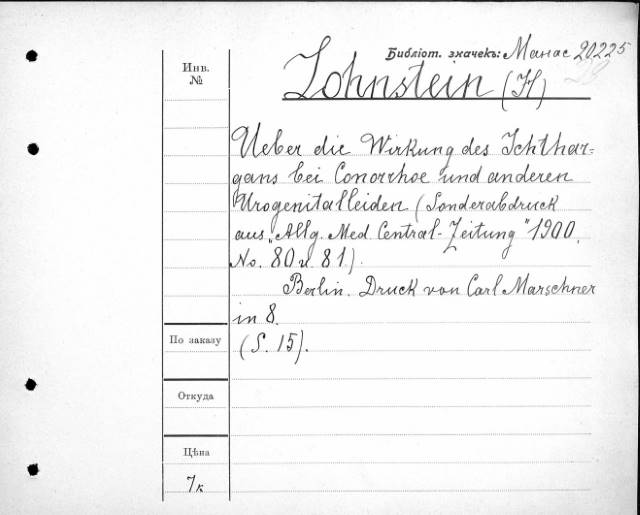 Библіот. значекъ: Манас 20225
Инв.
№
Lohnstein (H)
Ueber die Wirkung des Ichthar=
gans bei Conorrhoe und anderen
Urogenitalleiden (Sonderabdruck
aus „Allg. Med. Central-Zeitung" 1900.
No. 80 u. 81).
Berlin. Druck von Carl Marschner
in 8.
По заказу
(S. 15).
Откуда
Цѣна
7к